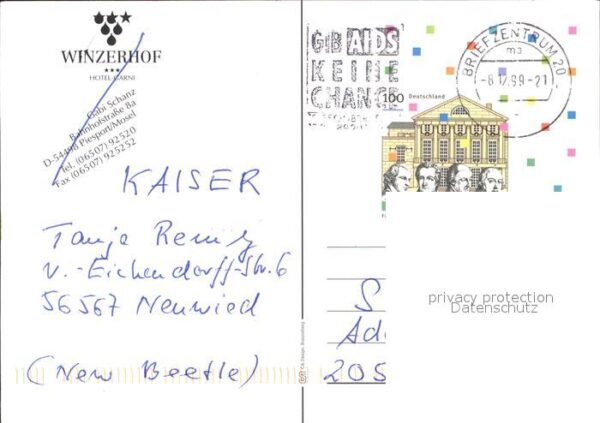 WINZERHOF
HOTEL GARNI
Gabi Schanz
Bahnhofstraße 8a
D-54498 Piesport/Mosel
Tel. (06507) 92520
Fax (06507) 925252
KAISER
Tanja
v.-Eichendorff-Str. 6
56567 Neuwied
(New Beetle)
GIB AIDS
KEINE
CHANCE
BRIEFZENTRUM 20
mg
-8.12.99-21
100
Deutschland
S
Ad
205
privacy protection
Datenschutz